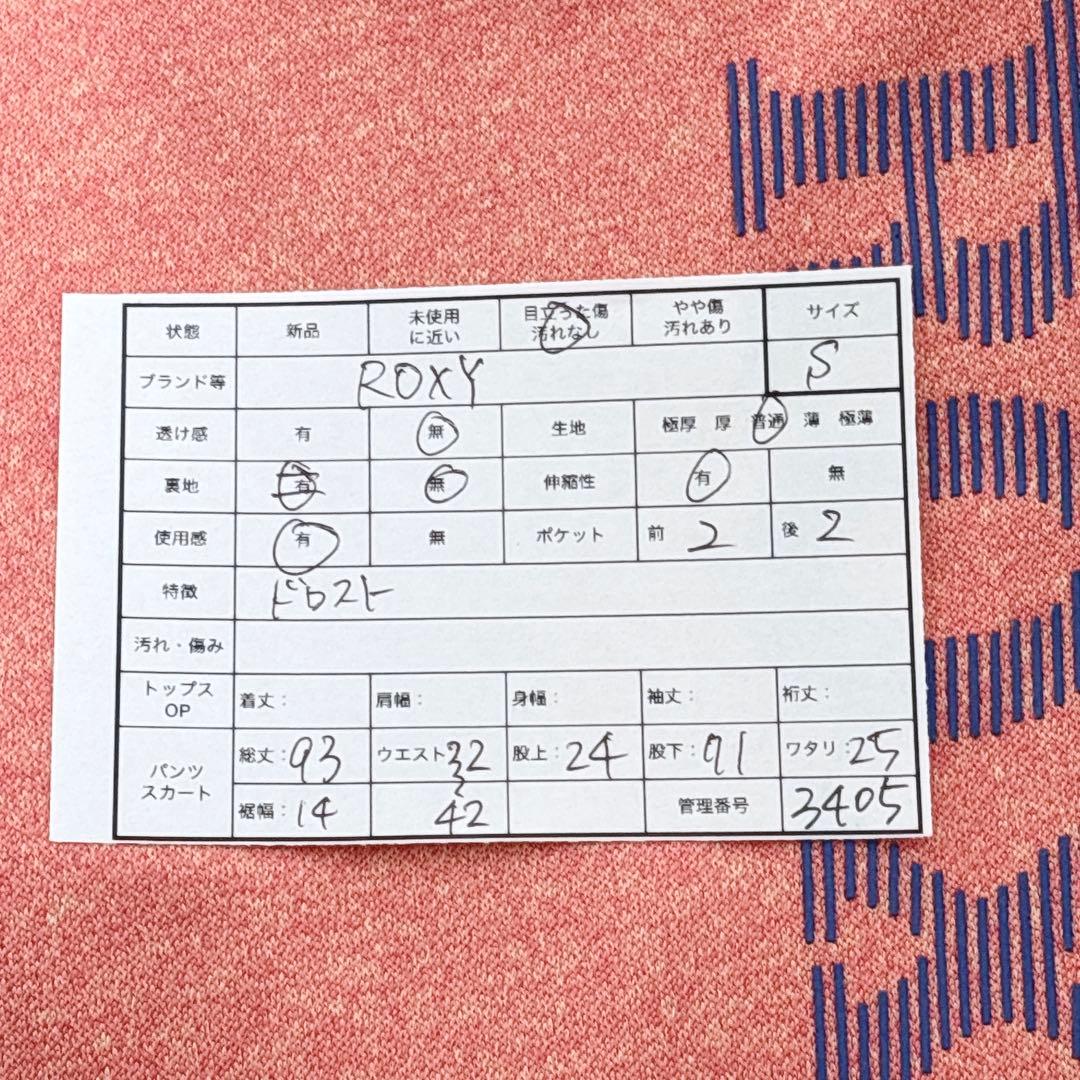 状態 新品 未使用に近い 目立った傷汚れなし やや傷汚れあり サイズ
ブランド等 ROXY S
透け感 有 無 生地 極厚 厚 普通 薄 極薄
裏地 有 無 伸縮性 有 無
使用感 有 無 ポケット 前 2 後 2
特徴 ドロスト
汚れ・傷み
トップス OP 着丈: 肩幅: 身幅: 袖丈: 裄丈:
パンツ スカート 総丈:93 ウエスト32 股上:24 股下:91 ワタリ:25
裾幅:14 〜42 管理番号 3405